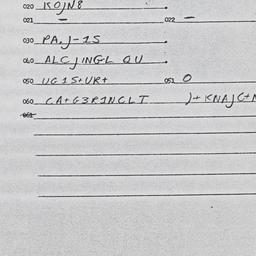 020 KOJN8
021 – 022 –
030 PA.J-1S
040 ALCJINGL QU
050 UG1S+UR+ 051 O
060 CA+G3R1NCLT )+KNAJC+
061